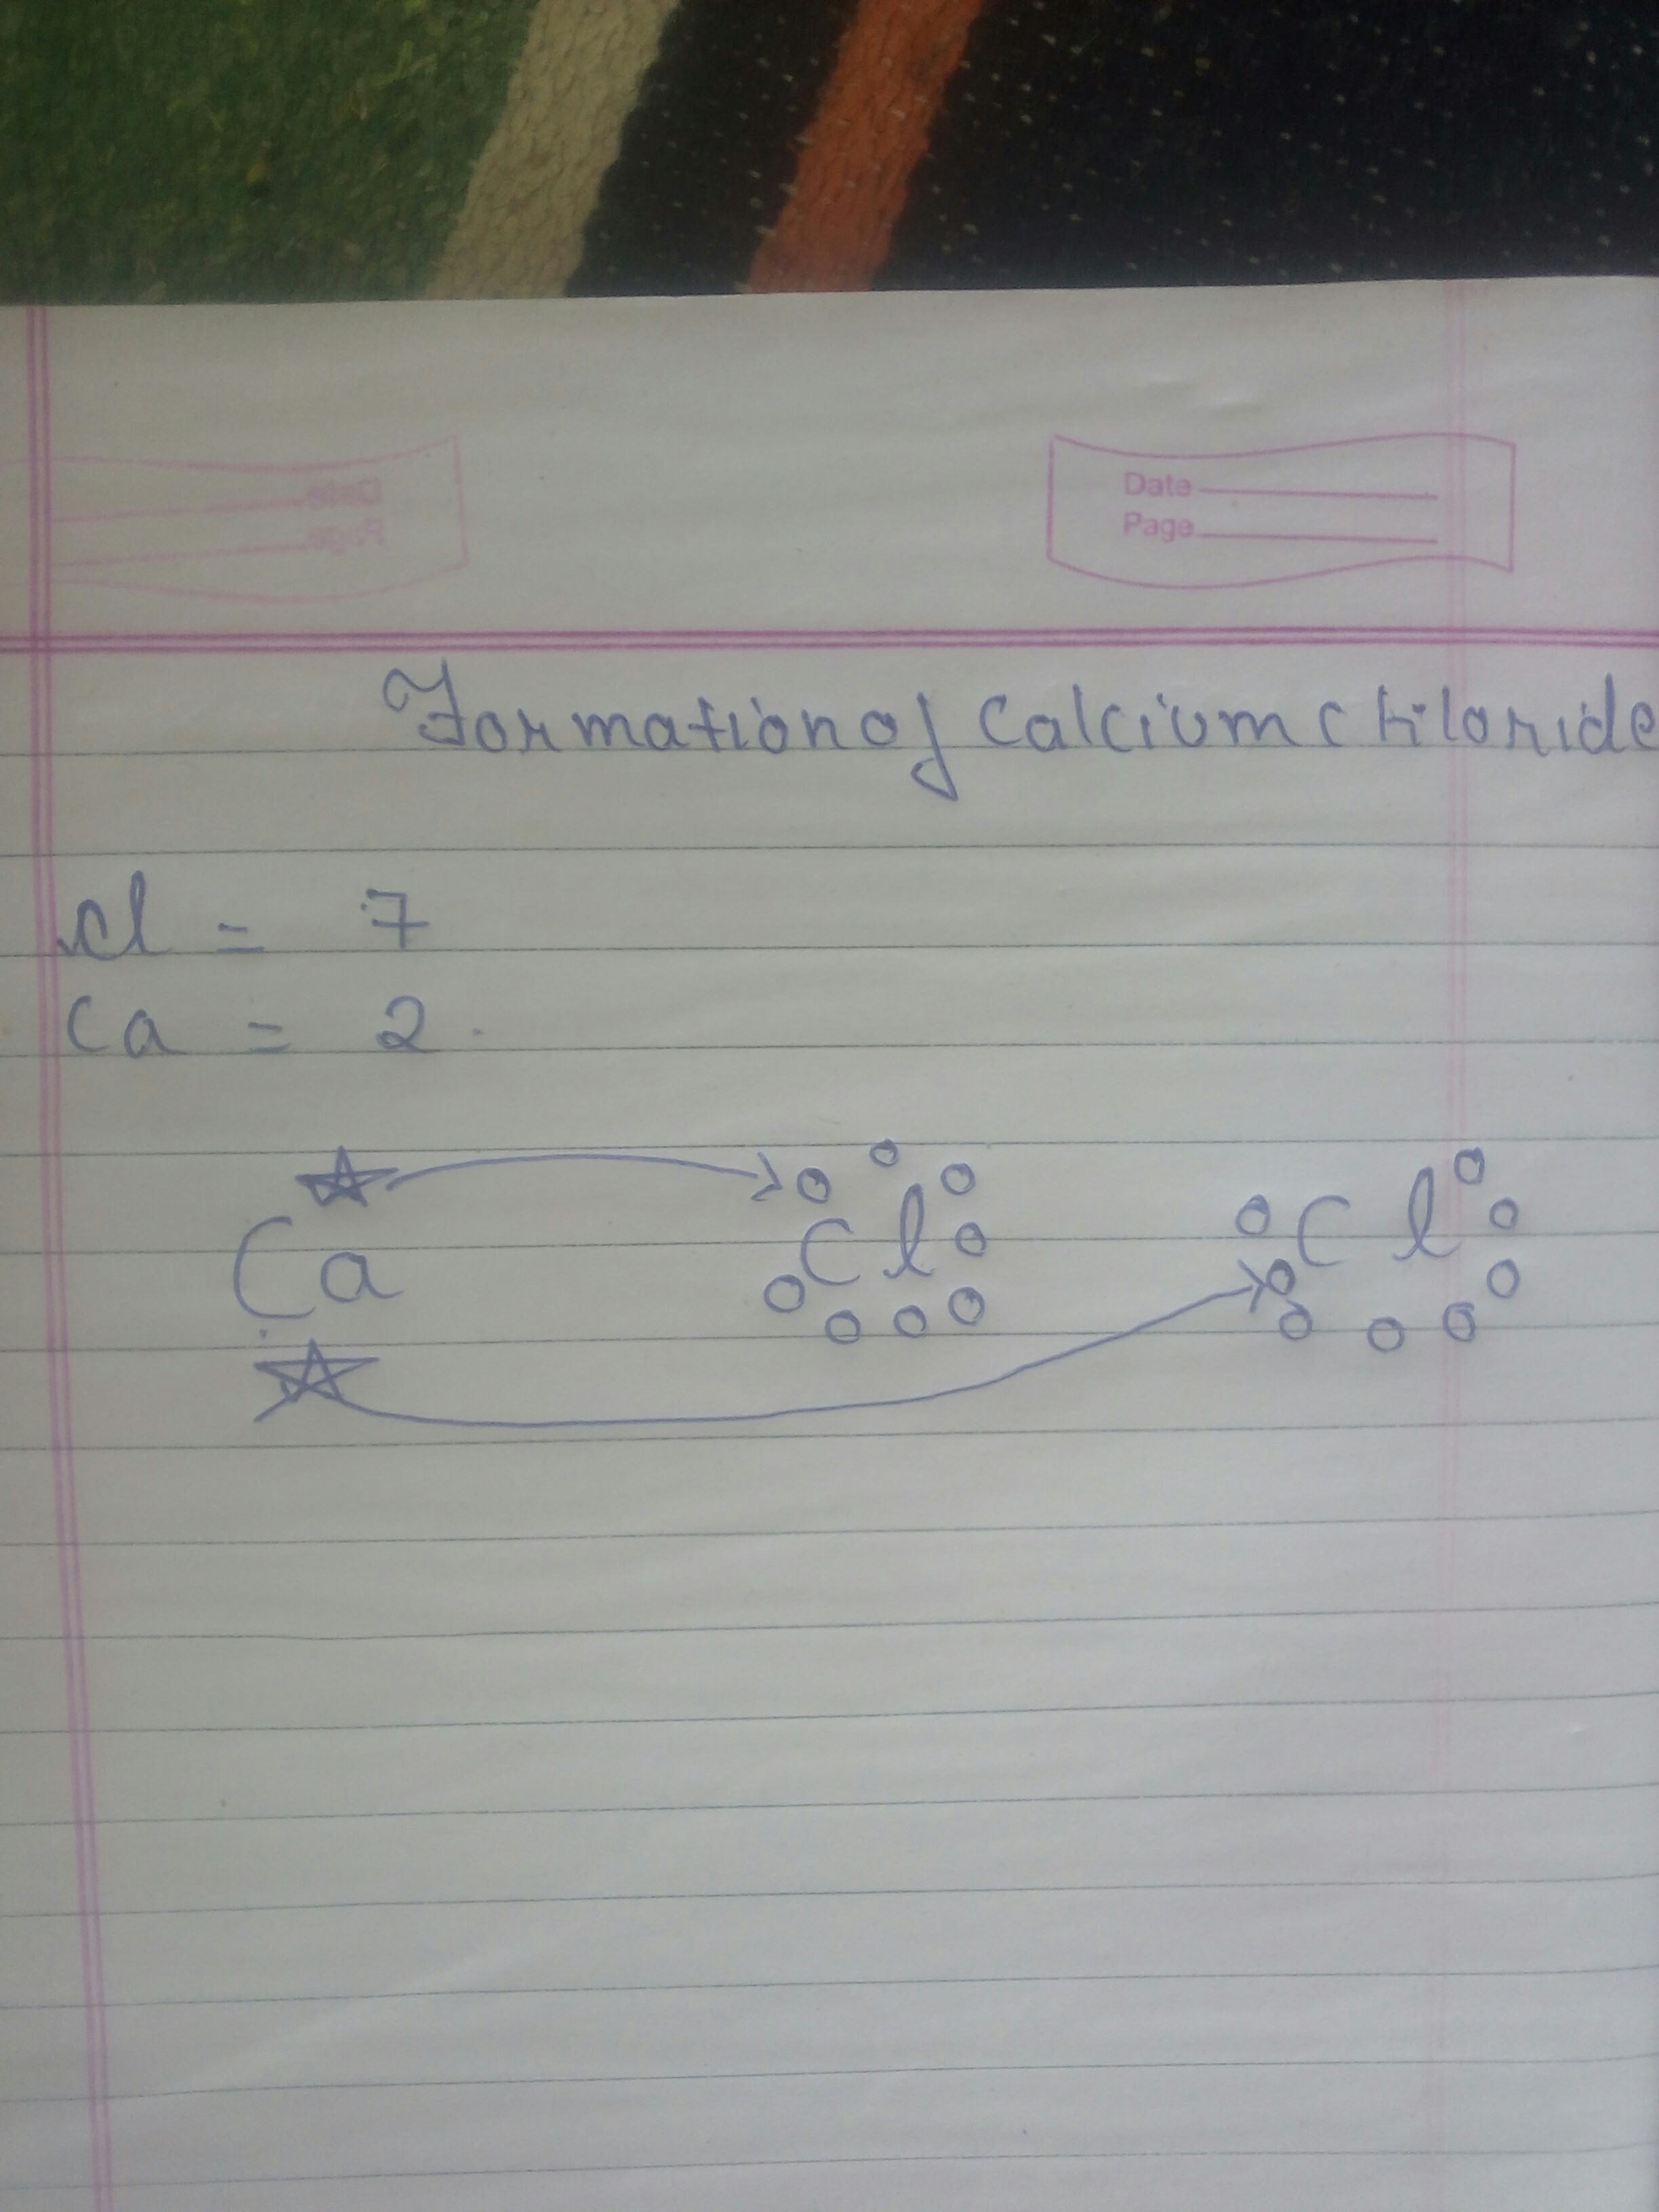 Date
Page
Formation of Calcium chloride
Cl = 7
Ca = 2
Ca Cl Cl